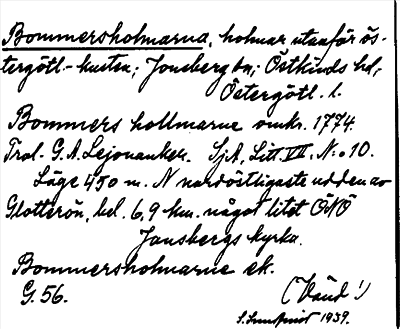 Bommersholmarna, holmar utanför ös-
tergötl.-kusten; Jonsberg sn; Östkinds hd,
Östergötl. l.
Bommers hollmarne omkr. 1774.
Trol. G. A. Lejonanker. SjA, Litt. VII, N:o 10.
Läge 450 m. N nordöstligaste udden av
Glotterön, bel. 6,9 km. något litet ÖNÖ
Jonsbergs kyrka.
Bommersholmarne ek.
G. 56. (Vänd!)
S. Lundquist 1939.